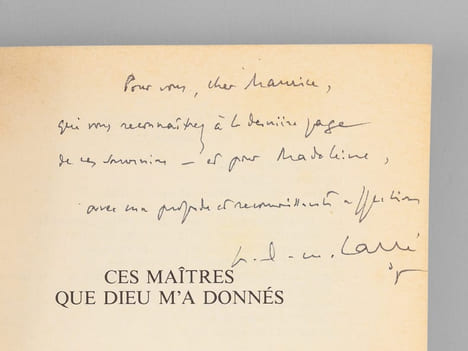 Pour vous, cher Maurice,
qui vous reconnaîtrez à la dernière page
de ces souvenirs – et pour Madeleine,
avec ma profonde et reconnaissante affection
a.-m. Carré
CES MAÎTRES
QUE DIEU M'A DONNÉS